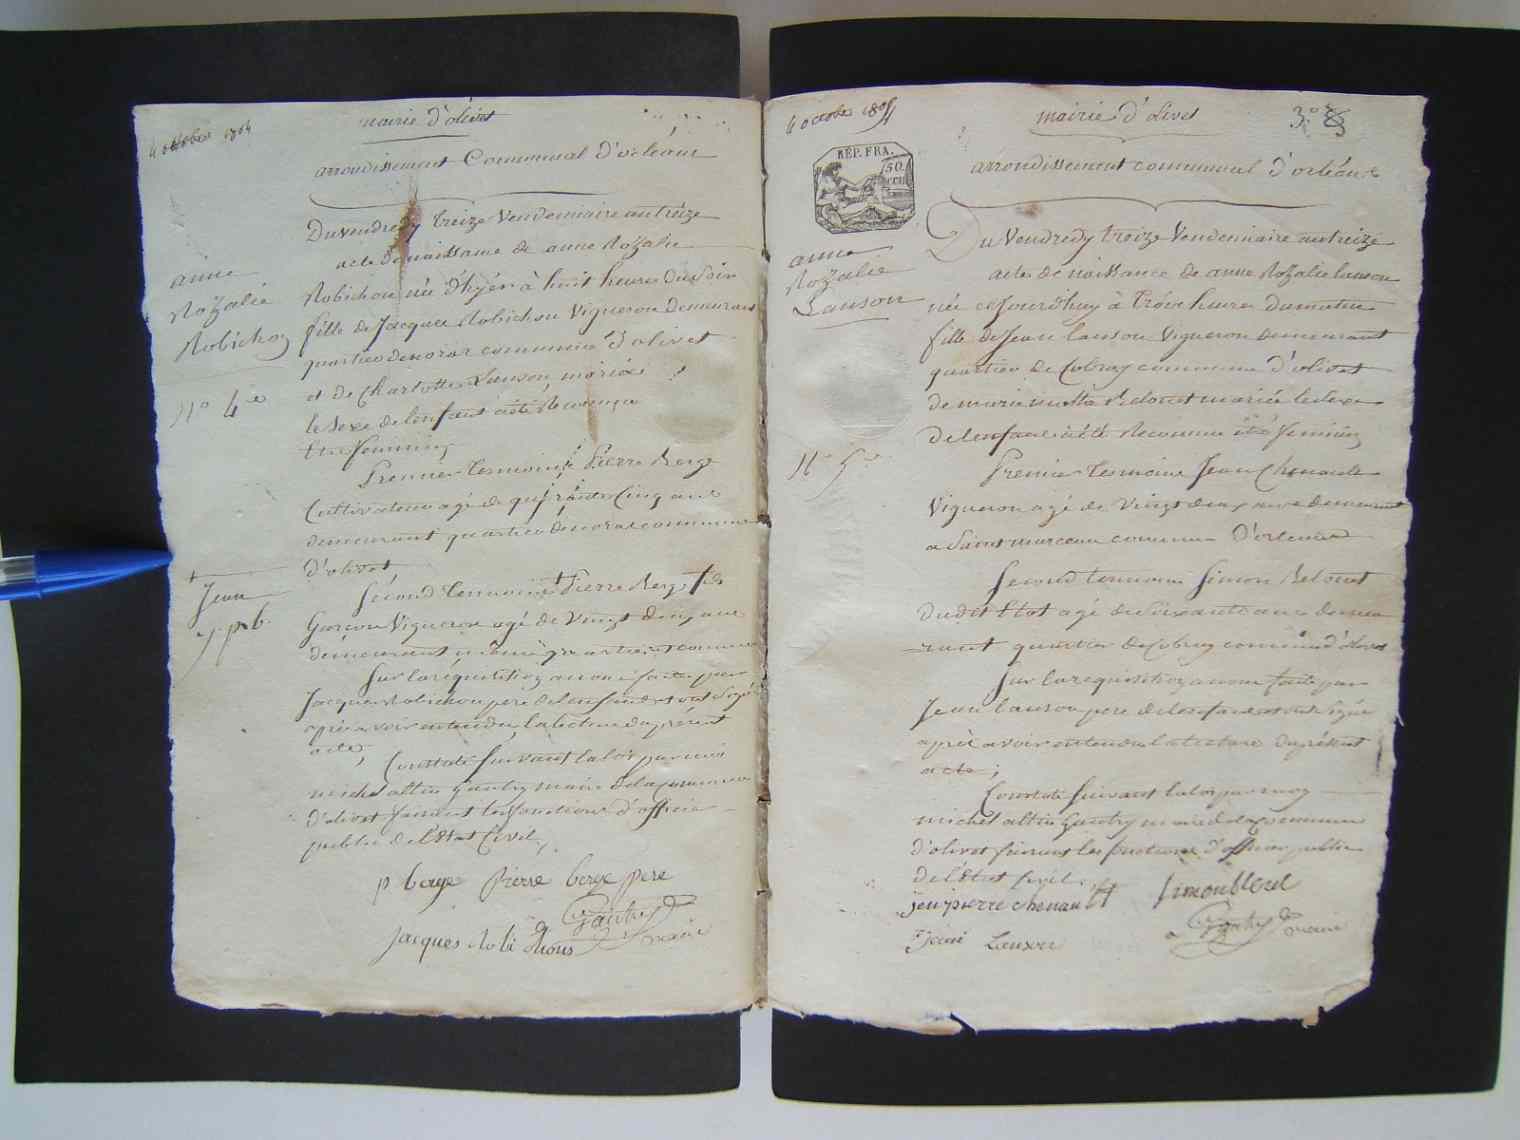 4 octobre 1804
mairie d'olivet
arrondissement Communal d'orleans
Du vendredy treize Vendemiaire an treize
acte de naissance de anne Rozalie
Robichou née d'hyér à huit heures du Soir
fille de Jacques Robichou Vigneron demeurant
quartier de commune d'olivet
et de Charlotte Lanson, mariée
le Sexe de lenfant a été Reconnu
Etre feminin
Premier temoint Pierre Berge
Cultivateur agé de cinq ans
demeurant quartier de commune
d'olivet
Second temoint Pierre Berge fils
Garcon Vigneron agé de Vingt deux ans
demeurant même quartier et commune
Sur la requisition a nous faite par
Jacques Robichou pere de lenfant et ont Signé
après avoir entendu la lecture du présent
acte,
Constaté Suivant la loi par moi
michel altin Gautry maire de la commune
d'olivet faisant les fonctions d'officier
public de l'Etat Civil,
p berge pierre berge pere
Gautry
maire
Jacques Robichons
anne
Rozalie
Robichou
N° 4e
Jean
4 octobre 1804
mairie d'olivet
3.e
arrondissement communal d'orléans
RÉP. FRA.
50
Du Vendredy treize Vendemiaire an treize
acte de naissance de anne Rozalie lanson
née cejourdhuy à trois heures du matin
fille de Jean lanson Vigneron demeurant
quartier de Cobray commune d'olivet
de marie mariée le Sexe
de lenfant a été Reconnu être feminin
Premier temoint Jean Chenault
Vigneron agé de Vingt deux ans demeurant
a Saint marceau commune D'orleans
Second temoint Simon
dudit Etat agé de Soixante ans demeu
rant quartier de Cobray commune d'olivet
Sur la requisition a nous faite par
Jean lanson pere de lenfant et ont Signé
après avoir entendu la lecture du présent
acte;
Constaté Suivant la loi par moy
michel altin Gautry maire de la commune
d'olivet faisant les fonctions d'officier public
de l'Etat Civil.
jean pierre chenault
Gautry
maire
Jean Lanson
anne
Rozalie
Lanson
N° 5e